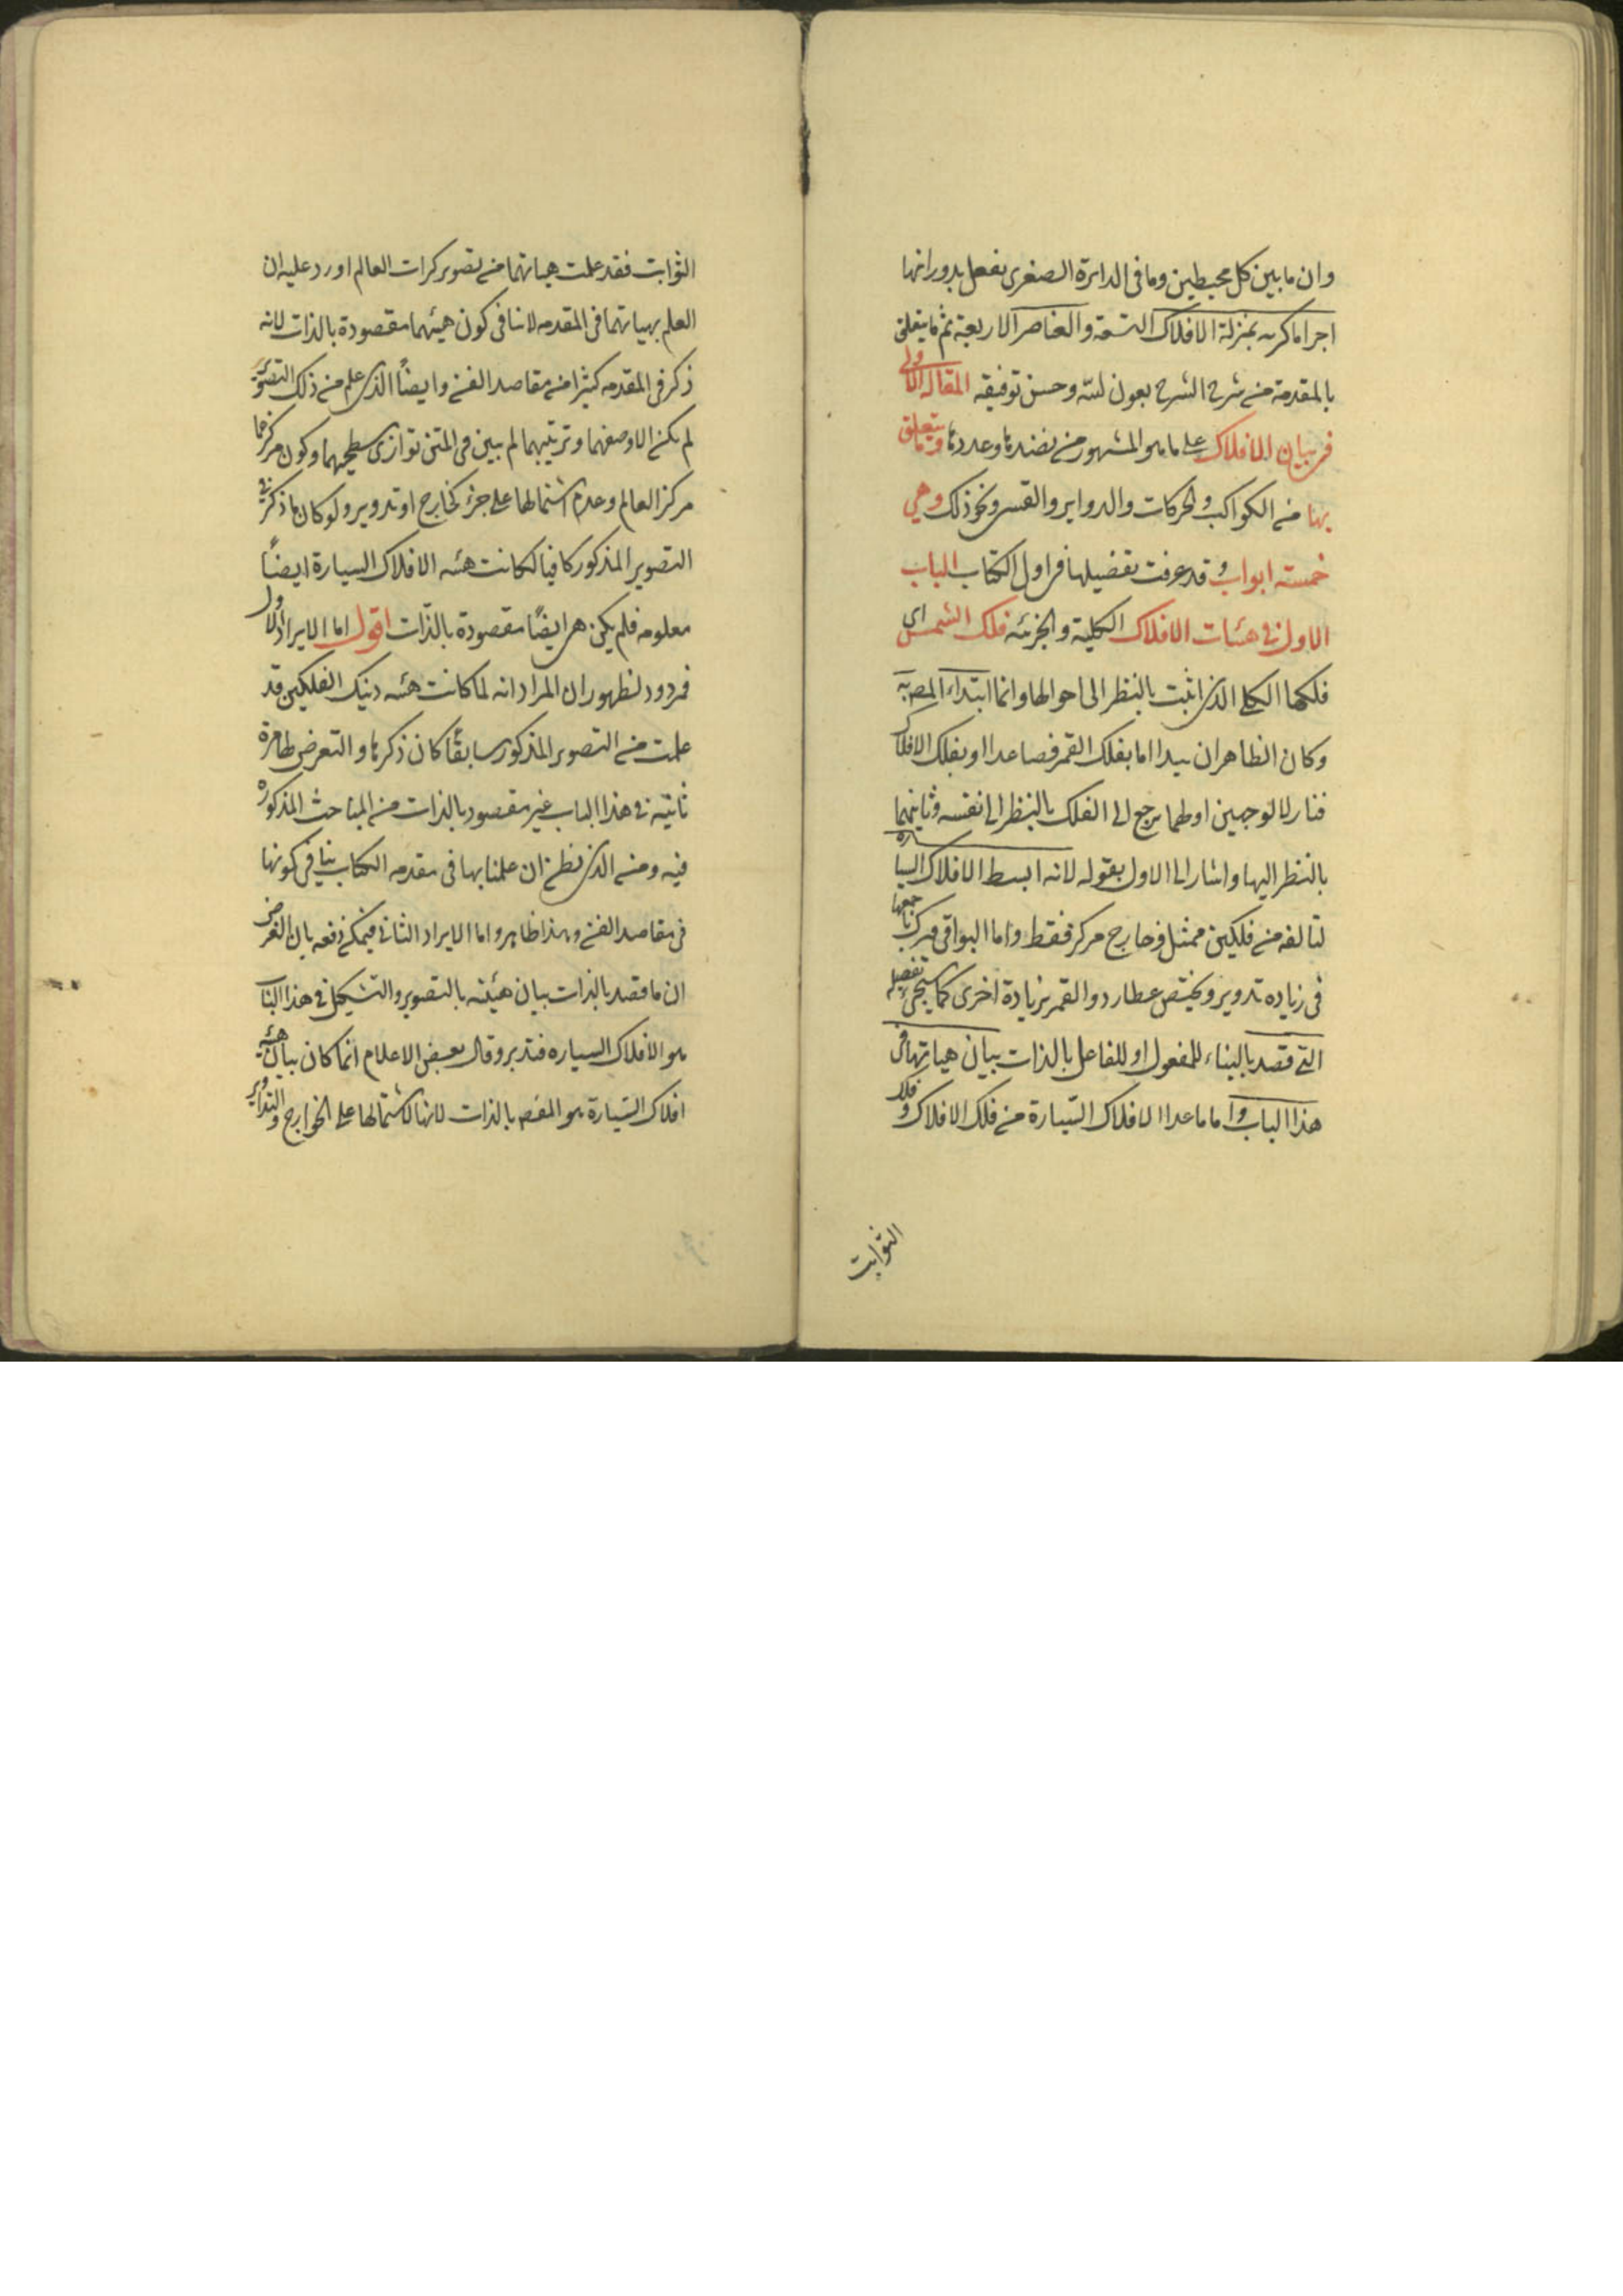 وان ما بين كل محيطين وما فى الدائرة الصغرى يفعل بدورانها
اجراما كريه بمنزلة الافلاك التسعة والعناصر الاربعة ثم ما يتعلق
بالمقدمة من شرح الشرح بعون الله وحسن توفيقه المقالة الاولى
فى بيان الافلاك على ما هو المشهور من نضدها وعددها وما يتعلق
بها من الكواكب والحركات والدواير والقسى ونحو ذلك وهي
خمسة ابواب وقد عرفت تفصيلها فى اول الكتاب الباب
الاول فى هيئات الافلاك الكلية والجزئيه فلك الشمس اى
فلكها الكلى الذى اثبت بالنظر الى احوالها وانما ابتداء المص به
وكان الظاهر ان يبدا اما بفلك القمر فصاعدا او بفلك الافلاك
فنازلا لوجهين اولهما يرجع الى الفلك بالنظر الى نفسه وثانيهما
بالنظر اليها واشار الى الاول بقوله لانه ابسط الافلاك السيارة
لتالفه من فلكين ممثل وخارج مركز فقط واما البواقى فيركبنا جميعها
فى زياده تدوير ويختص عطارد والقمر بزيادة اخرى كما سيجئ تفصيله
التى قصد بالبناء للمفعول او للفاعل بالذات بيان هياتها فى
هذا الباب واما ما عدا الافلاك السيارة من فلك الافلاك وفلك
الثوابت
الثوابت فقد علمت هياتهما من تصوير كرات العالم اورد عليه ان
العلم بهياتهما فى المقدمه لا ينافى كون هيئتهما مقصودة بالذات لانه
ذكر فى المقدمه كثيرا من مقاصد الفن وايضا الذى علم من ذلك التصوير
لم يكن الا وصفهما وترتيبهما لم يبين فى المتن توازى سطحيهما وكون مركزهما
مركز العالم وعدم اشتمالها على جزء كخارج او تدوير ولو كان ما ذكر فى
التصوير المذكور كافيا لكانت هيئه الافلاك السيارة ايضا
معلومه فلم يكن هى ايضا مقصودة بالذات اقول اما الايراد الاول
فمردود لظهور ان المراد انه لما كانت هيئه ذينك الفلكين قد
علمت من التصوير المذكور سابقا كان ذكرها والتعرض لها مرة
ثانيه فى هذا الباب غير مقصود بالذات من المباحث المذكوره
فيه ومن الذى يظن ان علمنا بها فى مقدمه الكتاب ينافى كونها
فى مقاصد الفن وهذا ظاهر واما الايراد الثانى فيمكن دفعه بان الغرض
ان ما قصد بالذات بيان هيئته بالتصوير والتشكيل فى هذا الباب
هو الافلاك السياره فتدبر وقال بعض الاعلام انما كان بيان هيئه
افلاك السيارة هو المقصم بالذات لانها لاشتمالها على الخوارج والتداوير